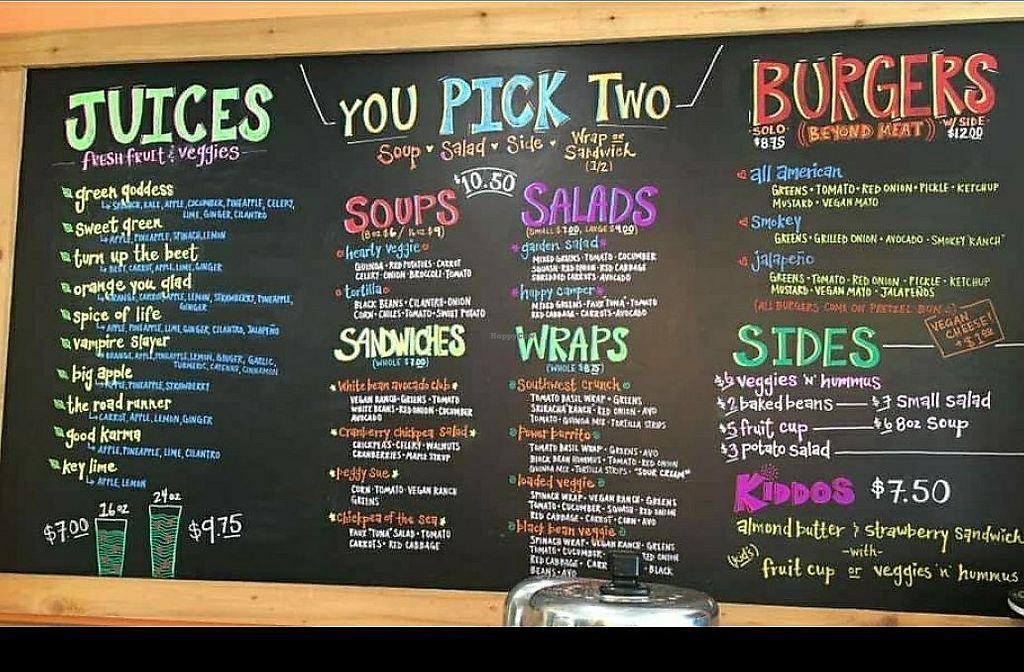 JUICES
fresh fruit & veggies
green goddess
SPINACH, KALE, APPLE, CUCUMBER, PINEAPPLE, CELERY,
LIME, GINGER, CILANTRO
sweet green
APPLE, PINEAPPLE, SPINACH, LEMON
turn up the beet
BEET, CARROT, APPLE, LIME, GINGER
orange you glad
ORANGE, CARROT, APPLE, LEMON, STRAWBERRY, PINEAPPLE,
GINGER
spice of life
APPLE, PINEAPPLE, LIME, GINGER, CILANTRO, JALAPEÑO
vampire slayer
ORANGE, APPLE, PINEAPPLE, LEMON, GINGER, GARLIC,
TURMERIC, CAYENNE, CINNAMON
big apple
APPLE, PINEAPPLE, STRAWBERRY
the road runner
CARROT, APPLE, LEMON, GINGER
good karma
APPLE, PINEAPPLE, LIME, CILANTRO
key lime
APPLE, LEMON
$7.00 16oz 24oz $9.75
YOU PICK TWO
Soup • Salad • Side • Wrap or
Sandwich
(1/2)
$10.50
SOUPS
(8oz $6 / 16oz $9)
hearty veggie
QUINOA • RED POTATOES • CARROT
CELERY • ONION • BROCCOLI • TOMATO
tortilla
BLACK BEANS • CILANTRO • ONION
CORN • CHILES • TOMATO • SWEET POTATO
SANDWICHES
(WHOLE $7.00)
white bean avocado club
VEGAN RANCH • GREENS • TOMATO
WHITE BEANS • RED ONION • CUCUMBER
AVOCADO
cranberry chickpea salad
CHICKPEAS • CELERY • WALNUTS
CRANBERRIES • MAPLE SYRUP
peggy sue
CORN • TOMATO • VEGAN RANCH
GREENS
chickpea of the sea
FAUX "TUNA" SALAD • TOMATO
CARROTS • RED CABBAGE
SALADS
(SMALL $7.00, LARGE $9.00)
garden salad
MIXED GREENS • TOMATO • CUCUMBER
SQUASH • RED ONION • RED CABBAGE
SHREDDED CARROTS • AVOCADO
happy camper
MIXED GREENS • FAUX TUNA • TOMATO
RED CABBAGE • CARROTS • AVOCADO
WRAPS
(WHOLE $8.75)
Southwest crunch
TOMATO BASIL WRAP • GREENS
SRIRACHA RANCH • RED ONION • AVO
TOMATO • QUINOA MIX • TORTILLA STRIPS
Power burrito
TOMATO BASIL WRAP • GREENS • AVO
BLACK BEAN HUMMUS • TOMATO • RED ONION
QUINOA MIX • TORTILLA STRIPS • "SOUR CREAM"
loaded veggie
SPINACH WRAP • VEGAN RANCH • GREENS
TOMATO • CUCUMBER • SQUASH • RED ONION
RED CABBAGE • CARROT • CORN • AVO
black bean veggie
SPINACH WRAP • VEGAN RANCH • GREENS
TOMATO • CUCUMBER RED ONION
RED CABBAGE • CARR BLACK
BEANS • AVO
BURGERS
SOLO $8.75 (BEYOND MEAT) W/ SIDE $12.00
all american
GREENS • TOMATO • RED ONION • PICKLE • KETCHUP
MUSTARD • VEGAN MAYO
smokey
GREENS • GRILLED ONION • AVOCADO • SMOKEY "RANCH"
jalapeño
GREENS • TOMATO • RED ONION • PICKLE • KETCHUP
MUSTARD • VEGAN MAYO • JALAPEÑOS
(ALL BURGERS COME ON PRETZEL BUN)
VEGAN
CHEESE!
+ $1.00
SIDES
$6 veggies 'n' hummus
$2 baked beans — $7 small salad
$5 fruit cup — $6 8oz soup
$3 potato salad
KIDDOS $7.50
almond butter & strawberry sandwich
-with-
(kid's) fruit cup or veggies 'n' hummus